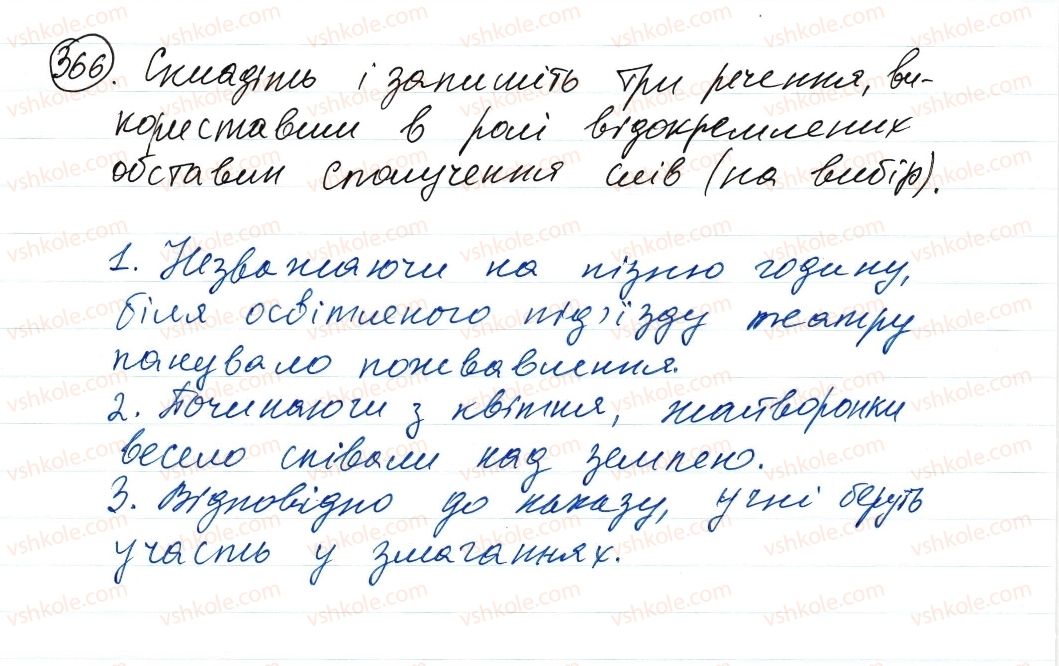 366. Складіть і запишіть три речення, ви-
користавши в ролі відокремлених
обставин сполучення слів (на вибір).
1. Незважаючи на пізню годину,
біля освітленого під'їзду театру
панувало пожвавлення.
2. Починаючи з квітня, жайворонки
весело співали над землею.
3. Відповідно до наказу, учні беруть
участь у змаганнях.